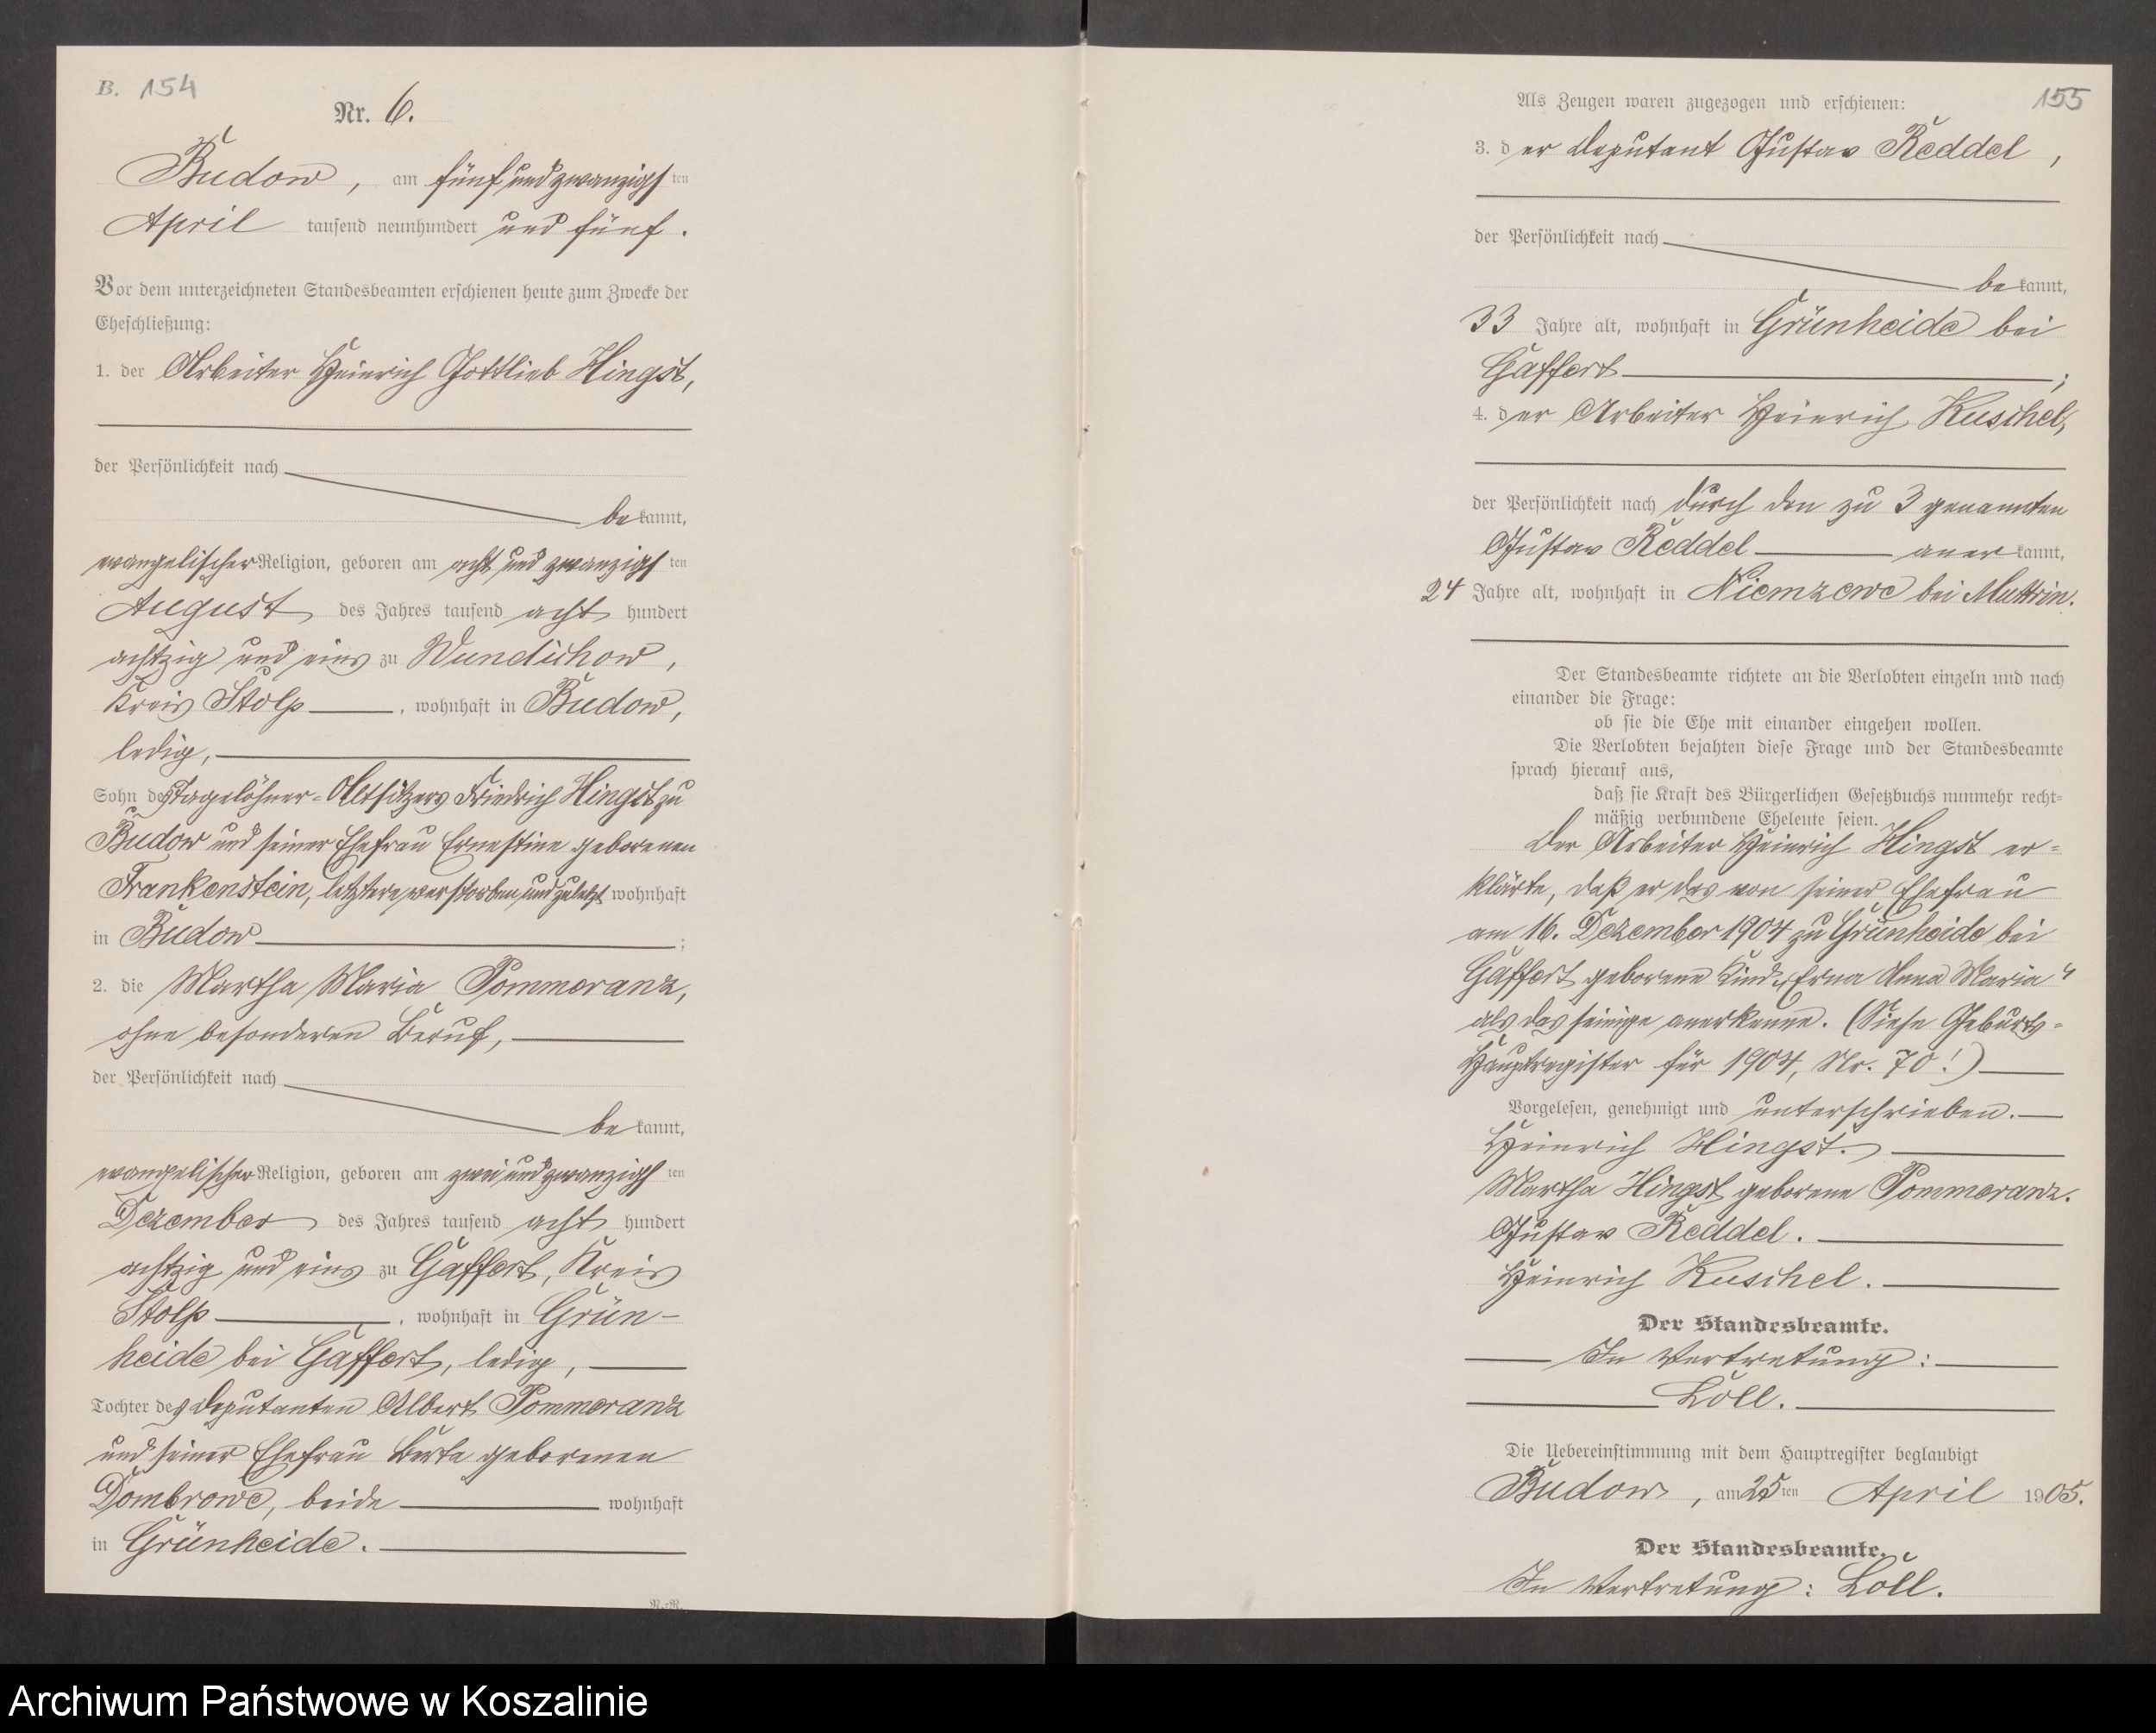 B. 154
Nr. 6.
Budow, am fünf und zwanzigsten
April tausend neunhundert und fünf.
Vor dem unterzeichneten Standesbeamten erschienen heute zum Zwecke der
Eheschließung:
1. der Arbeiter Heinrich Gottlieb Hingst,
der Persönlichkeit nach
bekannt,
evangelischer Religion, geboren am acht und zwanzigsten
August des Jahres tausend acht hundert
achtzig und eins zu Wundichow,
Kreis Stolp, wohnhaft in Budow,
ledig,
Sohn des Tagelöhner-Altsitzers Friedrich Hingst zu
Budow und seiner Ehefrau Ernestine geborenen
Frankenstein, letztere verstorben und zuletzt wohnhaft
in Budow;
2. die Martha Maria Pommeranz,
ohne besonderen Beruf,
der Persönlichkeit nach
bekannt,
evangelischer Religion, geboren am zwei und zwanzigsten
Dezember des Jahres tausend acht hundert
achtzig und eins zu Gaffert, Kreis
Stolp, wohnhaft in Grün-
heide bei Gaffert, ledig,
Tochter des Deputanten Albert Pommeranz
und seiner Ehefrau Berta geborenen
Dombrowe, beide wohnhaft
in Grünheide.
R.-R.
155
Als Zeugen waren zugezogen und erschienen:
3. der Deputant Gustav Reddel,
der Persönlichkeit nach
bekannt,
33 Jahre alt, wohnhaft in Grünheide bei
Gaffert;
4. der Arbeiter Heinrich Kuschel,
der Persönlichkeit nach durch den zu 3 genannten
Gustav Reddel anerkannt,
24 Jahre alt, wohnhaft in Niemzewe bei Muttrin.
Der Standesbeamte richtete an die Verlobten einzeln und nach
einander die Frage:
ob sie die Ehe mit einander eingehen wollen.
Die Verlobten bejahten diese Frage und der Standesbeamte
sprach hierauf aus,
daß sie Kraft des Bürgerlichen Gesetzbuchs nunmehr recht-
mäßig verbundene Eheleute seien.
Der Arbeiter Heinrich Hingst er-
klärte, daß er das von seiner Ehefrau
am 16. Dezember 1904 zu Grünheide bei
Gaffert geborene Kind „Erna Anna Maria“
als das seinige anerkenne. (Siehe Geburts-
Hauptregister für 1904, Nr. 70!)
Vorgelesen, genehmigt und unterschrieben.
Heinrich Hingst.
Martha Hingst geborene Pommeranz.
Gustav Reddel.
Heinrich Kuschel.
Der Standesbeamte.
In Vertretung:
Loll.
Die Uebereinstimmung mit dem Hauptregister beglaubigt
Budow, am 25ten April 1905.
Der Standesbeamte.
In Vertretung: Loll.
Archiwum Państwowe w Koszalinie